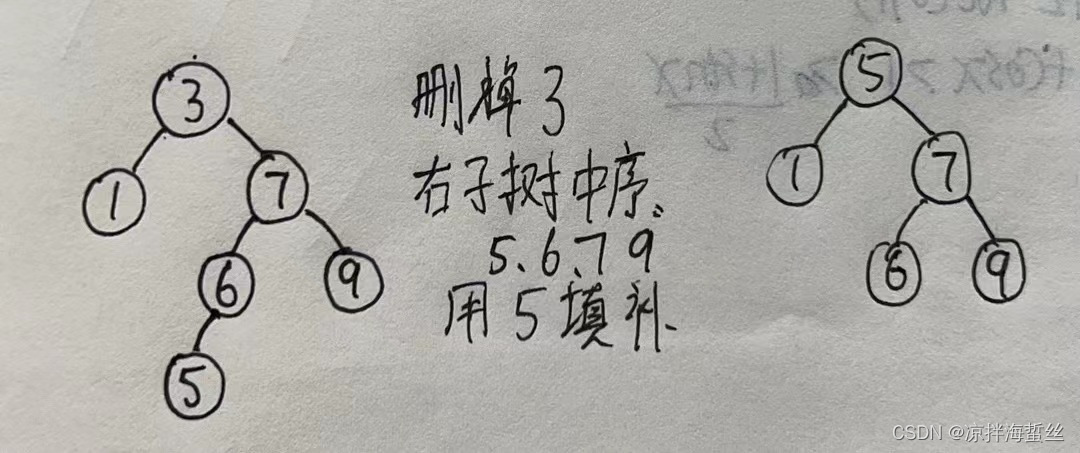 3
1
7
6
9
5
删掉3
右子树中序、
5、6、7 9
用5填补、
5
1
7
6
9
CSDN @凉拌海蜇丝